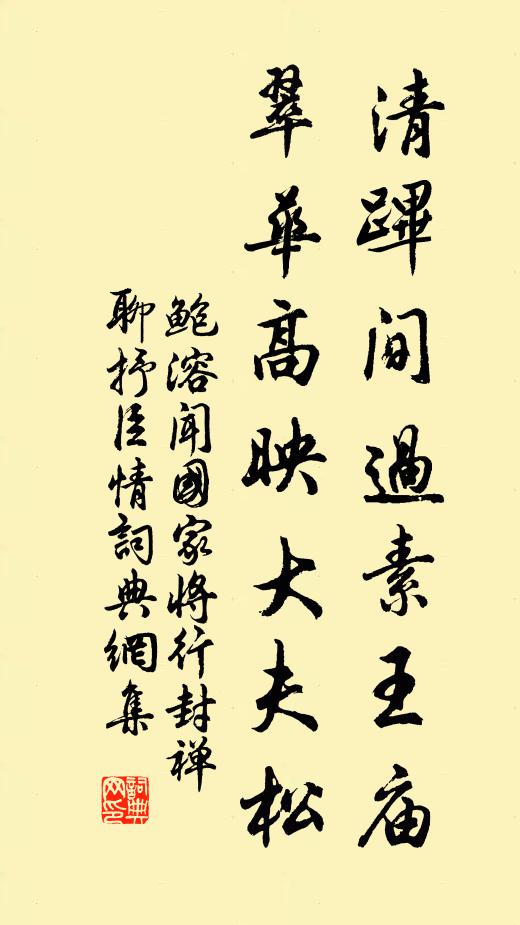 清蹕間過素王庙
翠華高映大夫松
鲍溶闻國家将行封禅
聊抒臣情詞典網集
詞典网印